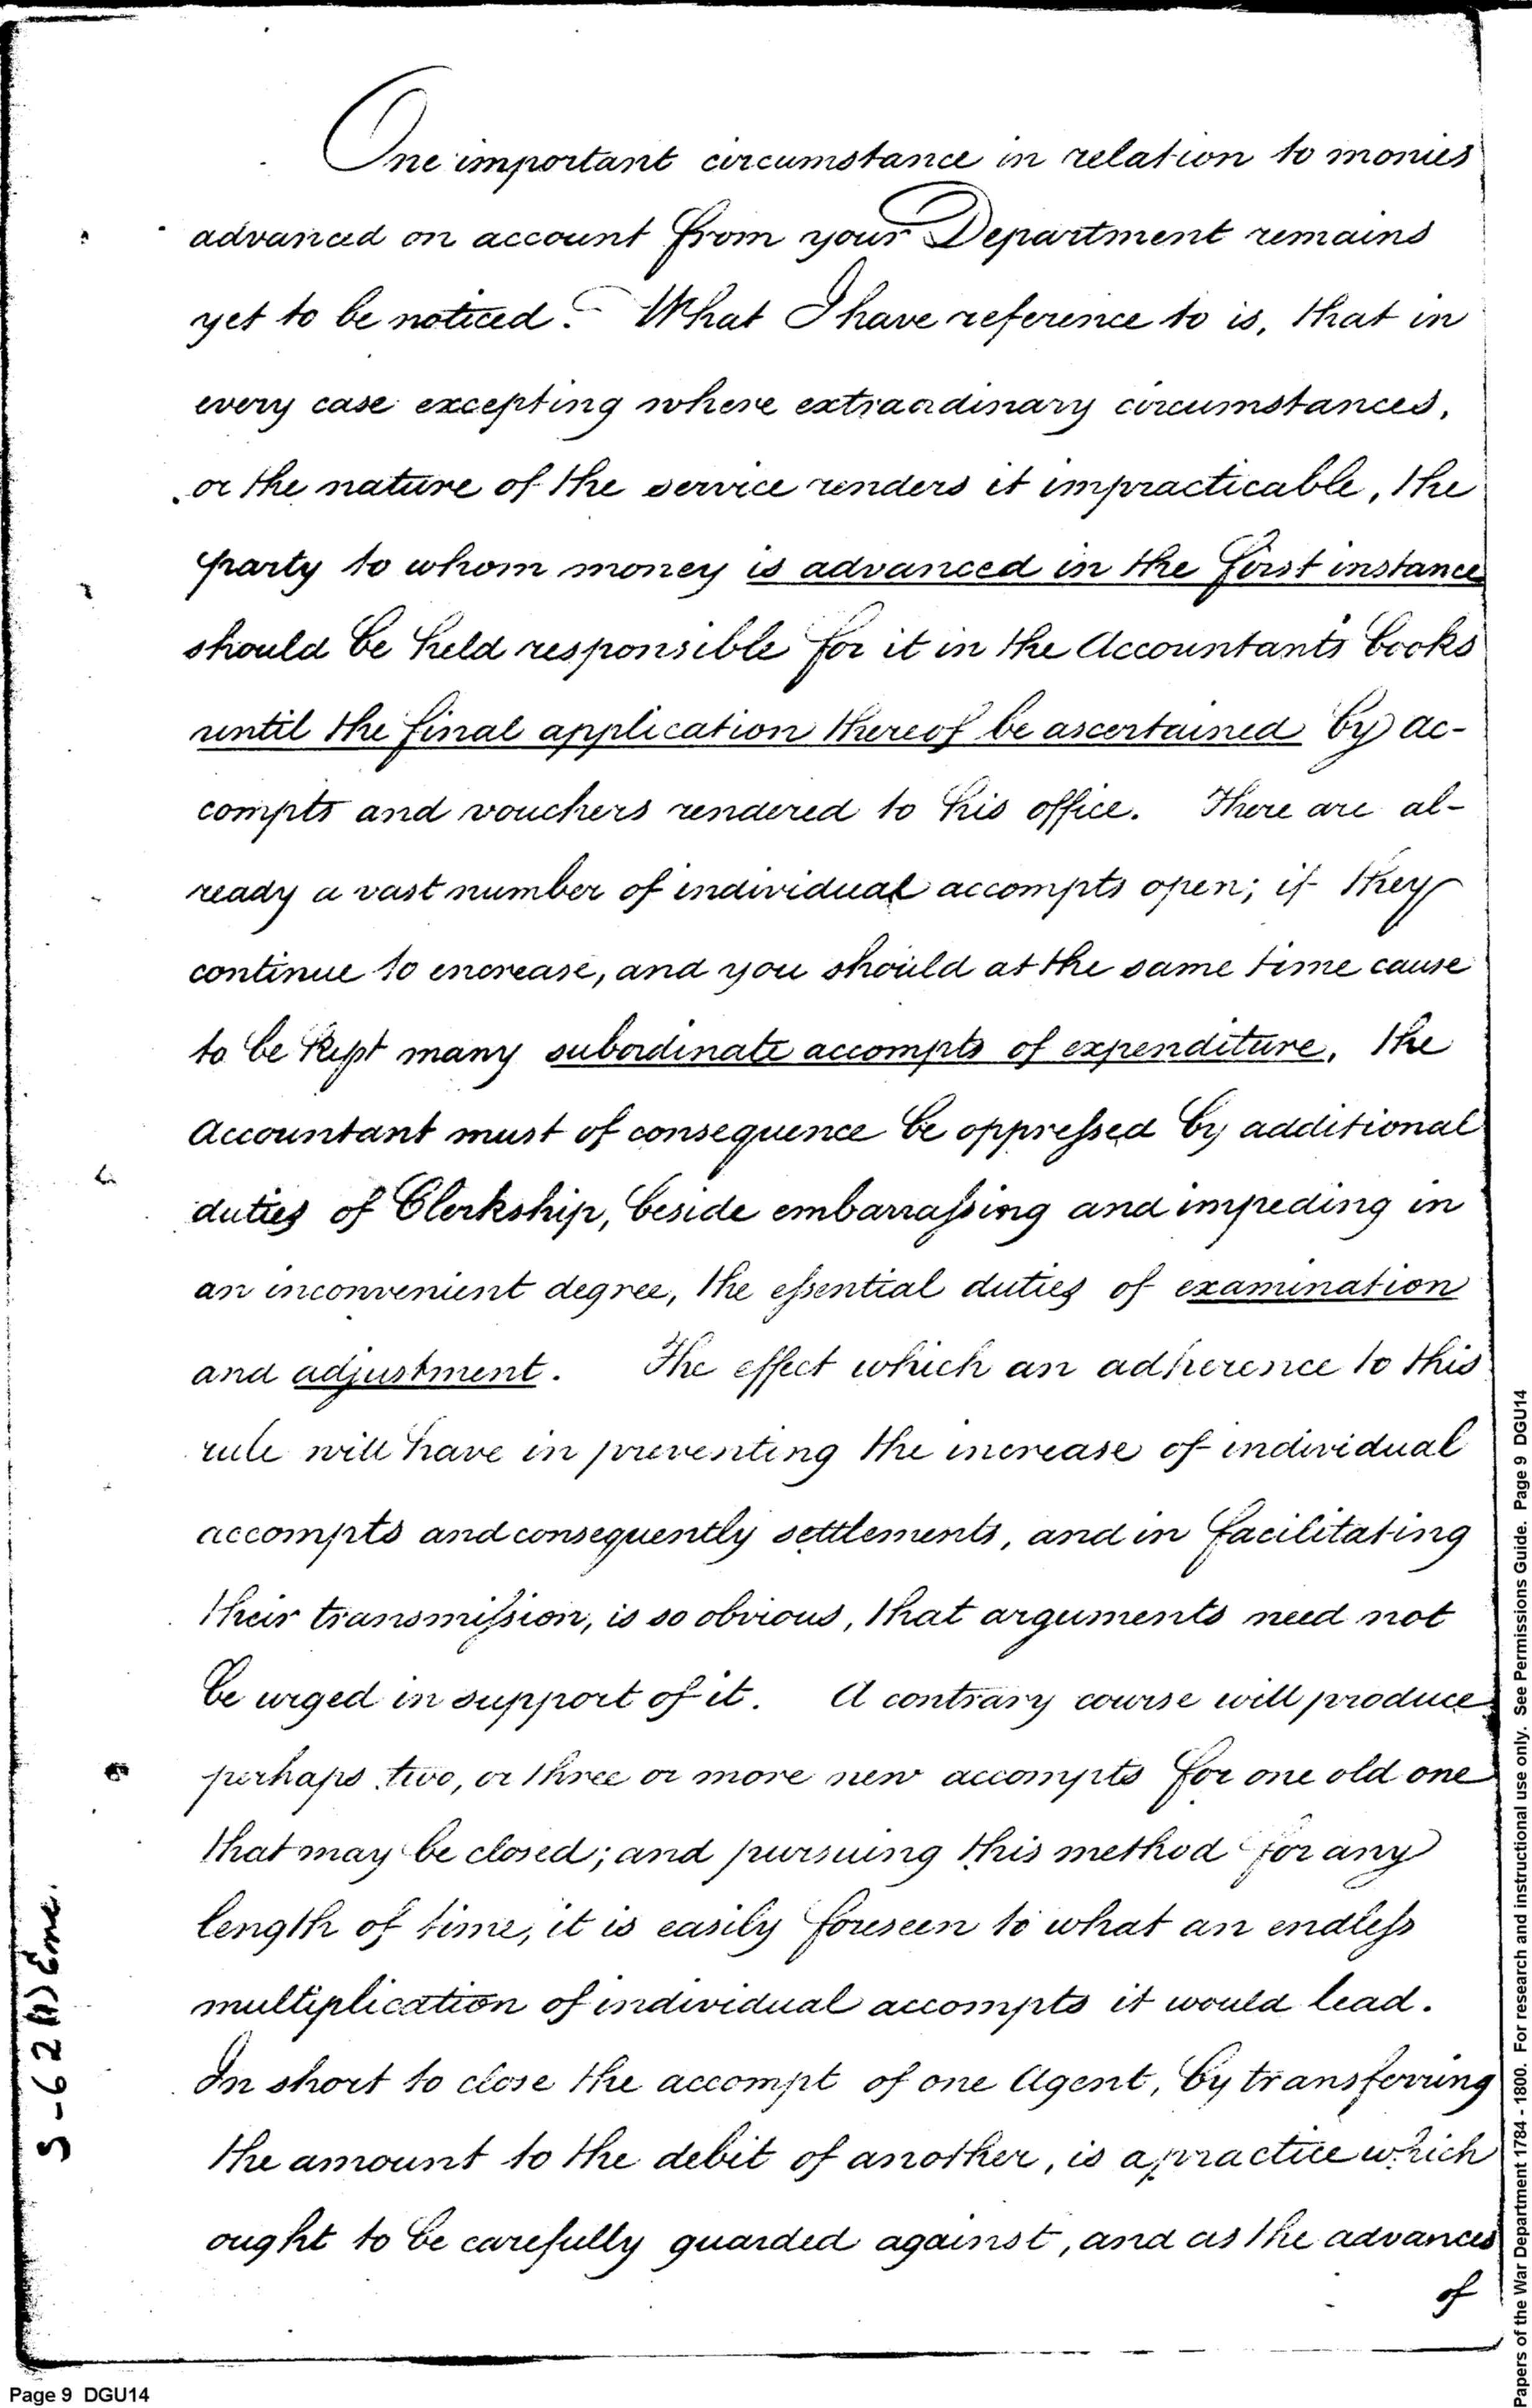 One important circumstance in relation to monies
advanced on account from your Department remains
yet to be noticed. What I have reference to is, that in
every case excepting where extraordinary circumstances,
or the nature of the service renders it impracticable, the
party to whom money is advanced in the first instance
should be held responsible for it in the Accountant's books
until the final application thereof be ascertained by ac-
compts and vouchers rendered to his office. There are al-
ready a vast number of individual accompts open; if they
continue to encrease, and you should at the same time cause
to be kept many subordinate accompts of expenditure, the
Accountant must of consequence be oppressed by additional
duties of Clerkship, beside embarrassing and impeding in
an inconvenient degree, the essential duties of examination
and adjustment. The effect which an adherence to this
rule will have in preventing the increase of individual
accompts and consequently settlements, and in facilitating
their transmission, is so obvious, that arguments need not
be urged in support of it. A contrary course will produce
perhaps two, or three or more new accompts for one old one
that may be closed; and pursuing this method for any
length of time, it is easily foreseen to what an endless
multiplication of individual accompts it would lead.
In short to close the accompt of one Agent, by transferring
the amount to the debit of another, is a practice which
ought to be carefully guarded against, and as the advances
of
S-62 (A) Enc.
Page 9 DGU14
Papers of the War Department 1784 - 1800. For research and instructional use only. See Permissions Guide. Page 9 DGU14